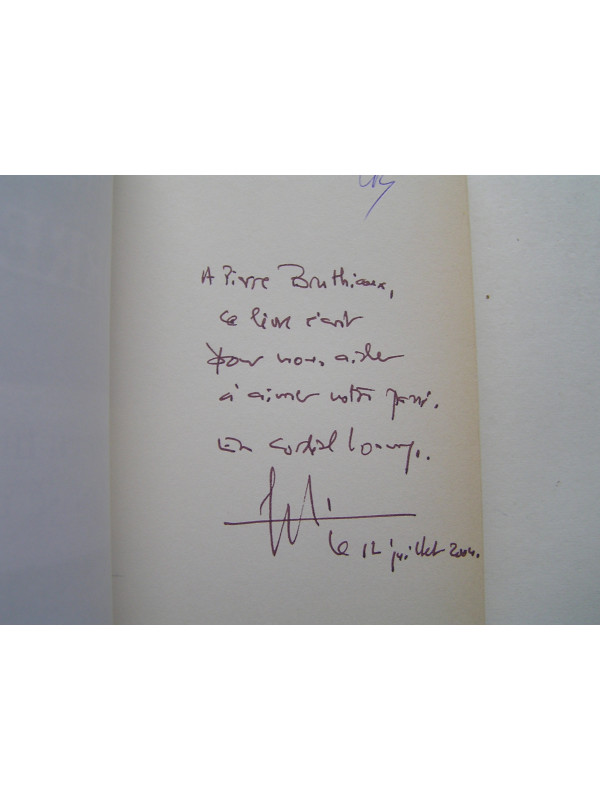 A Pierre Bruthiaux,
ce livre écrit
pour nous aider
à aimer notre passé.
En cordial hommage.
le 12 juillet 2004.